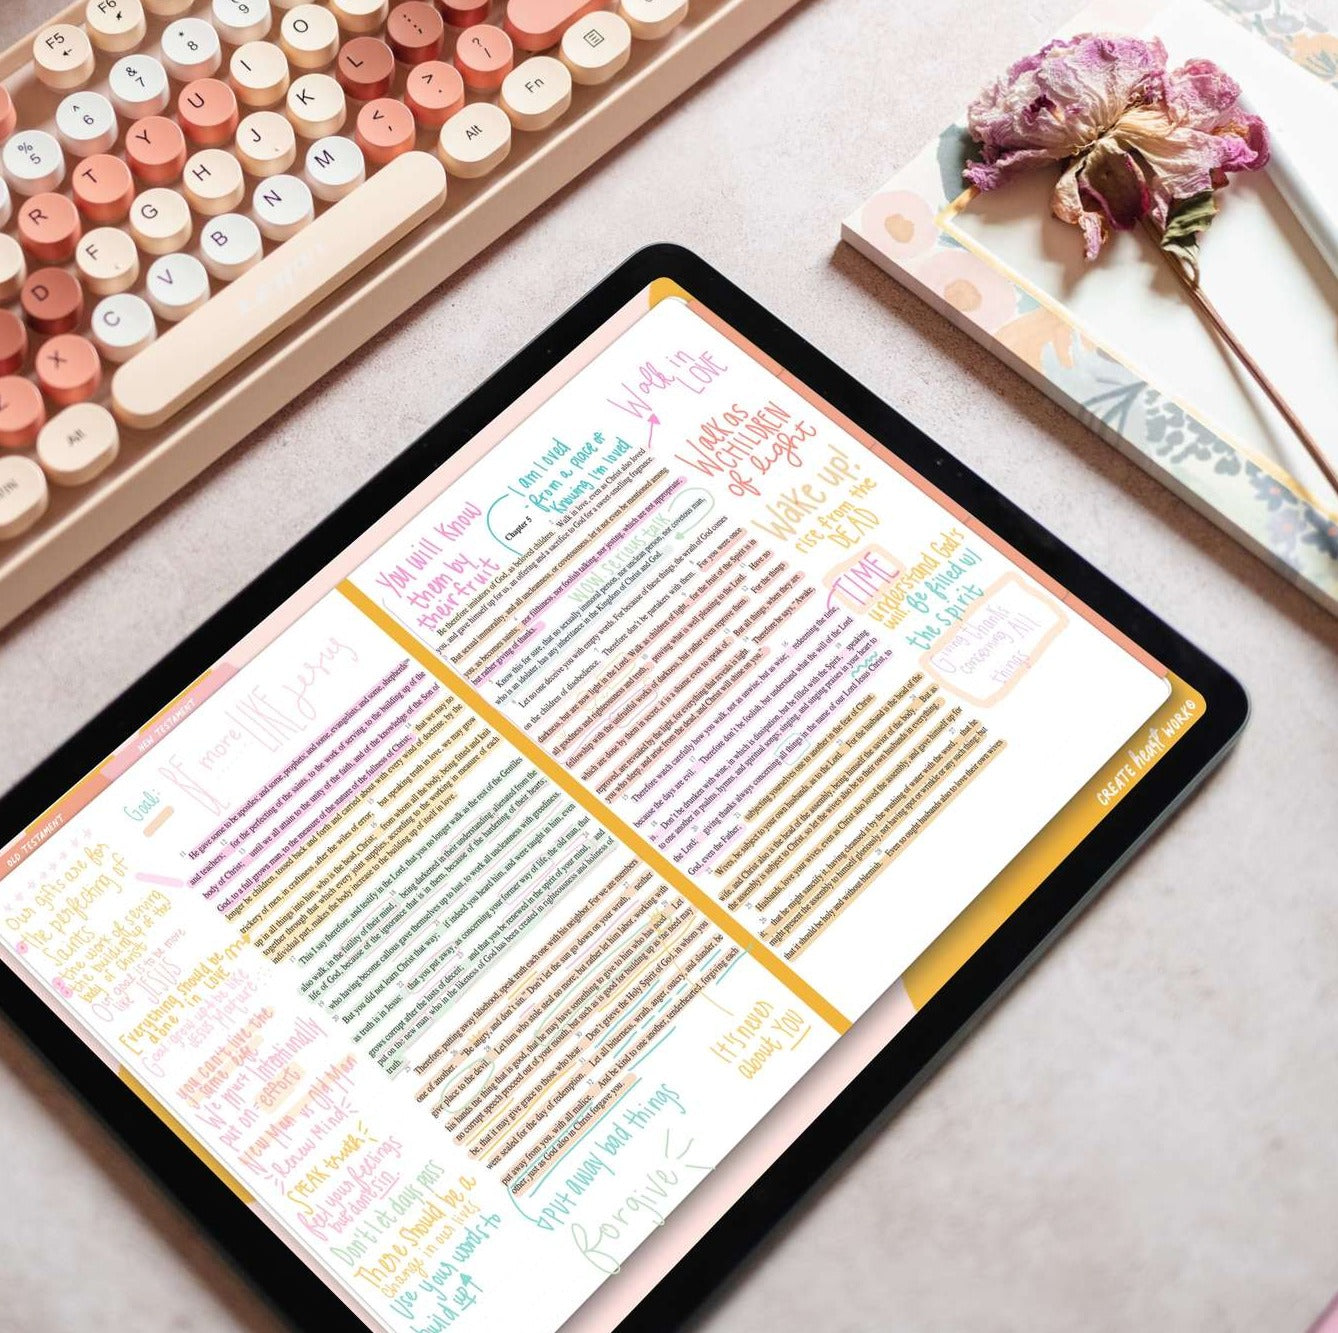 F5
F6
* 8
( 9
O
I
& 7
U
K
L
? /
> .
Fn
^ 6
Y
J
< ,
Alt
% 5
T
H
M
R
G
N
F
B
D
V
C
X
Alt
OLD TESTAMENT
NEW TESTAMENT
CREATE heart WORK
Goal: BE more LIKE Jesus
Our gifts are for
the perfecting of
saints
the work of serving
the building up of the
body of Christ
Our goal is to be more
like JESUS
Everything should be
done in LOVE
Goal: grow up to be like
JESUS MATURE!
you can't live the
same life
We must Intentionally
put on = effort
New Man vs Old Man
renew Mind
SPEAK truth
feel your feelings
but don't sin
Don't let days pass
There should be a
change in our lives
Use your words to
build up
He gave some to be apostles; and some, prophets; and some, evangelists; and some, shepherds
and teachers; for the perfecting of the saints, to the work of serving, to the building up of the
body of Christ; until we all attain to the unity of the faith, and of the knowledge of the Son of
God, to a full grown man, to the measure of the stature of the fullness of Christ; that we may no
longer be children, tossed back and forth and carried about with every wind of doctrine, by the
trickery of men, in craftiness, after the wiles of error; but speaking truth in love, we may grow
up in all things into him, who is the head, Christ; from whom all the body, being fitted and knit
together through that which every joint supplies, according to the working in measure of each
individual part, makes the body increase to the building up of itself in love.
This I say therefore, and testify in the Lord, that you no longer walk as the rest of the Gentiles
also walk, in the futility of their mind, being darkened in their understanding, alienated from the
life of God, because of the ignorance that is in them, because of the hardening of their hearts;
who having become callous gave themselves up to lust, to work all uncleanness with greediness.
But you did not learn Christ that way; if indeed you heard him, and were taught in him, even
as truth is in Jesus: that you put away, as concerning your former way of life, the old man, that
grows corrupt after the lusts of deceit; and that you be renewed in the spirit of your mind, and
put on the new man, who in the likeness of God has been created in righteousness and holiness of
truth.
Therefore, putting away falsehood, speak truth each one with his neighbor. For we are members
one of another. "Be angry, and don't sin." Don't let the sun go down on your wrath, neither
give place to the devil. Let him who stole steal no more; but rather let him labor, working with
his hands the thing that is good, that he may have something to give to him who has need. Let
no corrupt speech proceed out of your mouth, but such as is good for building up as the need may
be, that it may give grace to those who hear. Don't grieve the Holy Spirit of God, in whom you
were sealed for the day of redemption. Let all bitterness, wrath, anger, outcry, and slander, be
put away from you, with all malice. And be kind to one another, tenderhearted, forgiving each
other, just as God also in Christ forgave you.
put away bad things
forgive
It is never
about YOU
You will know
them by
their fruit
I am loved
from a place of
Knowing I'm loved
Walk in
LOVE
Chapter 5
Be therefore imitators of God, as beloved children. Walk in love, even as Christ also loved
you, and gave himself up for us, an offering and a sacrifice to God for a sweet-smelling fragrance.
But sexual immorality, and all uncleanness, or covetousness, let it not even be mentioned among
you, as becomes saints; nor filthiness, nor foolish talking, nor jesting, which are not appropriate,
but rather giving of thanks.
wow serious talk
Know this for sure, that no sexually immoral person, nor unclean person, nor covetous man,
who is an idolater, has any inheritance in the Kingdom of Christ and God.
Let no one deceive you with empty words. For because of these things, the wrath of God comes
on the children of disobedience. Therefore don't be partakers with them. For you were once
darkness, but are now light in the Lord. Walk as children of light, for the fruit of the Spirit is in
all goodness and righteousness and truth, proving what is well pleasing to the Lord. Have no
fellowship with the unfruitful works of darkness, but rather even reprove them. For the things
which are done by them in secret, it is a shame even to speak of. But all things, when they are
reproved, are revealed by the light, for everything that reveals is light. Therefore he says, "Awake
you who sleep, and arise from the dead, and Christ will shine on you."
Therefore watch carefully how you walk, not as unwise, but as wise; redeeming the time,
because the days are evil. Therefore don't be foolish, but understand what the will of the Lord
is. Don't be drunken with wine, in which is dissipation, but be filled with the Spirit, speaking
to one another in psalms, hymns, and spiritual songs; singing, and singing praises in your heart to
the Lord; giving thanks always concerning all things in the name of our Lord Jesus Christ, to
God, even the Father; subjecting yourselves one to another in the fear of Christ.
Wives, be subject to your own husbands, as to the Lord. For the husband is the head of the
wife, and Christ also is the head of the assembly, being himself the savior of the body. But as
the assembly is subject to Christ, so let the wives also be to their own husbands in everything.
Husbands, love your wives, even as Christ also loved the assembly, and gave himself up for
it; that he might sanctify it, having cleansed it by the washing of water with the word, that he
might present the assembly to himself gloriously, not having spot or wrinkle or any such thing; but
that it should be holy and without blemish. Even so ought husbands also to love their own wives
Walk as
CHILDREN
of light
Wake up!
rise from the
DEAD
TIME
understand God's
will
Be filled w/
the spirit
Giving thanks
concerning All
things